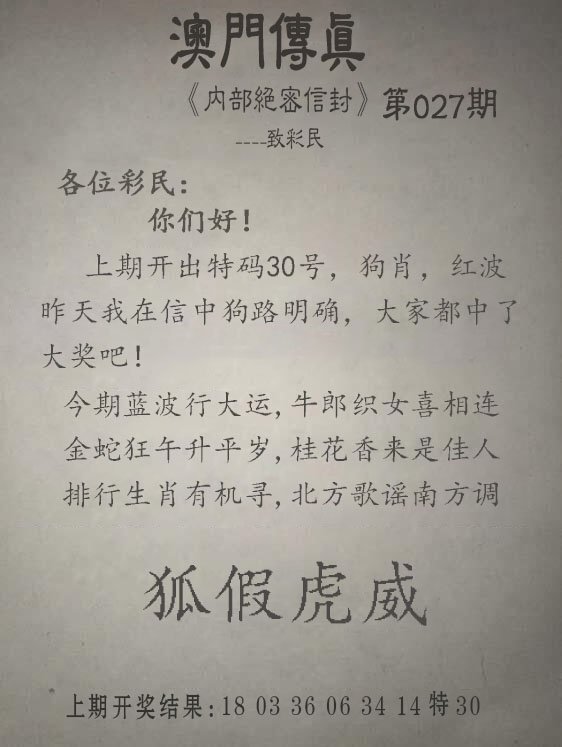 澳門傳眞
《内部絕密信封》第027期
----致彩民
各位彩民:
你们好!
上期开出特码30号，狗肖，红波
昨天我在信中狗路明确，大家都中了
大奖吧!
今期蓝波行大运,牛郎织女喜相连
金蛇狂午升平岁,桂花香来是佳人
排行生肖有机寻,北方歌谣南方调
狐假虎威
上期开奖结果:18 03 36 06 34 14特30